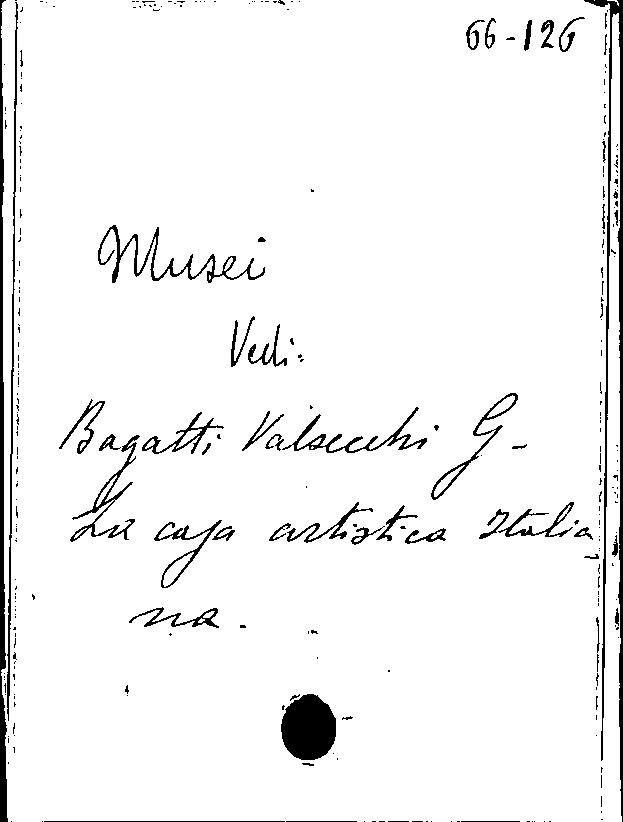 66-126
Musei
Vedi:
Bagatti Valsecchi G-
La casa artistica Italia
na.